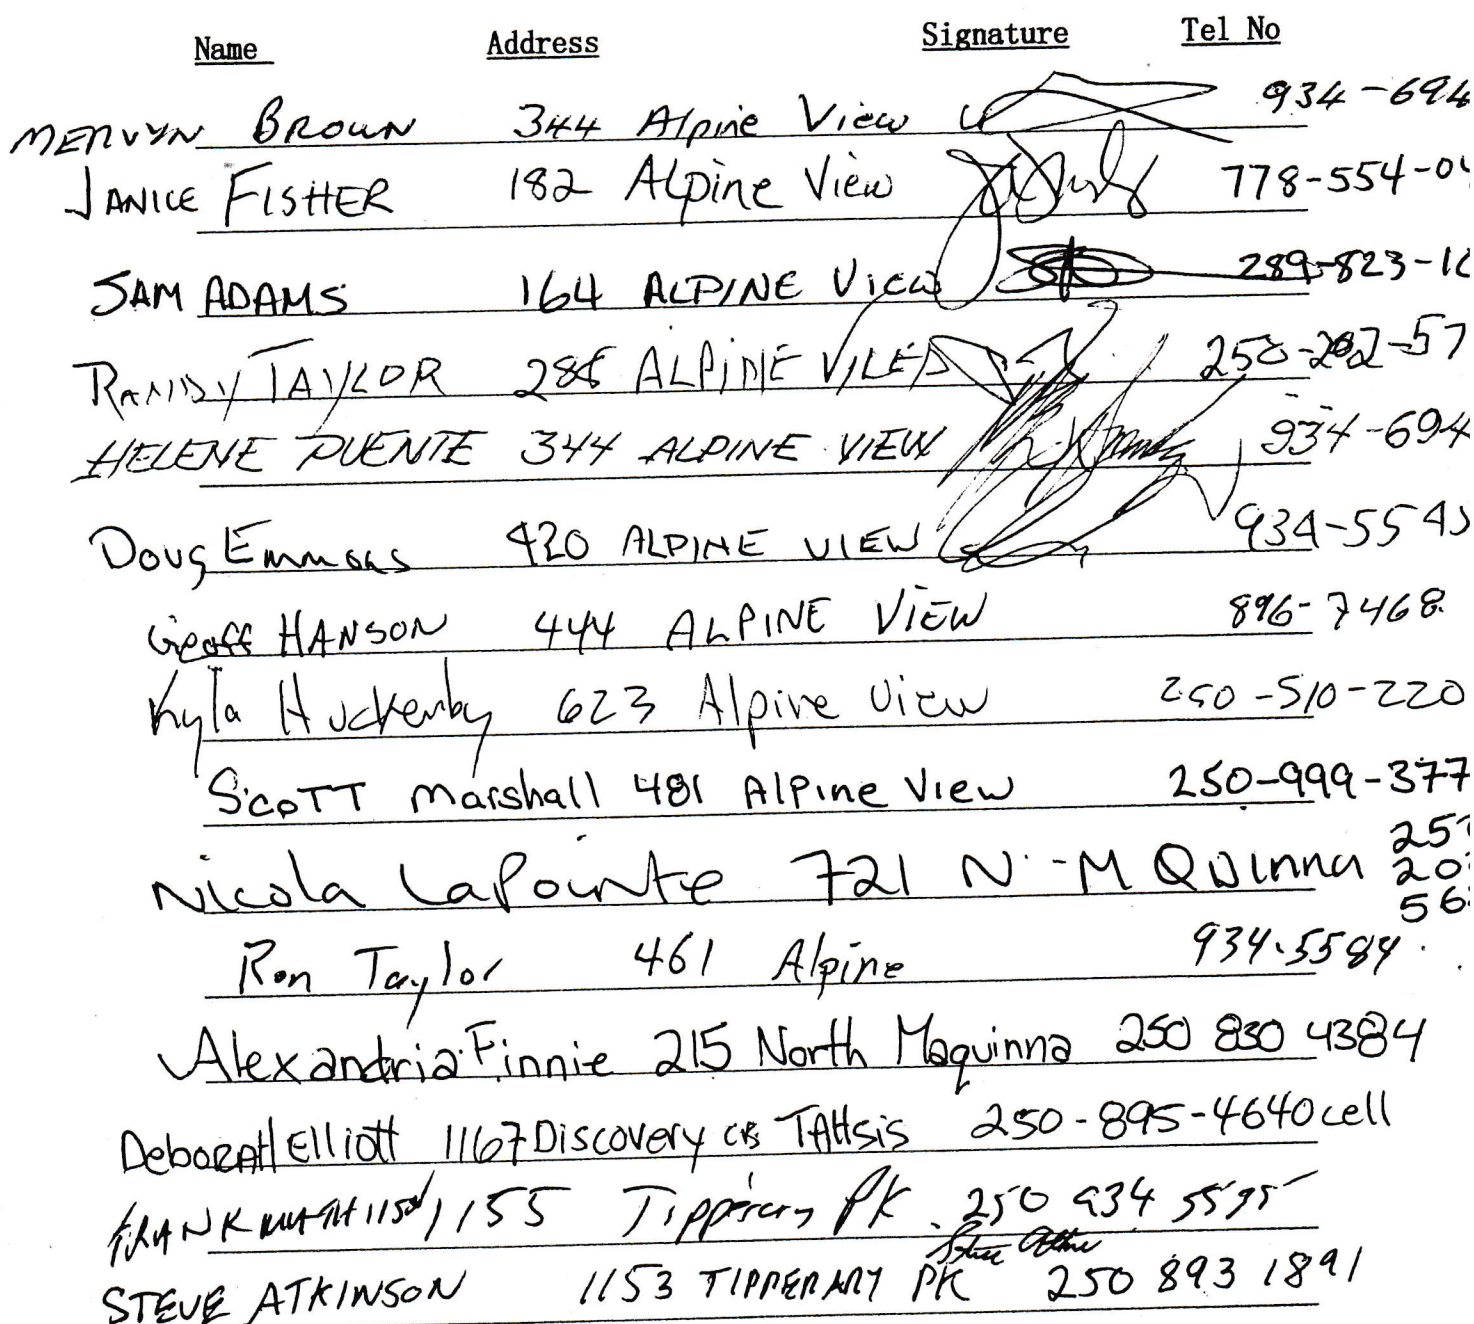 Name Address Signature Tel No
MERVYN BROWN 344 Alpine View 934-694
JANICE FISHER 182 Alpine View 778-554-04
SAM ADAMS 164 ALPINE View 289-823-10
RANDY TAYLOR ALPINE 57
HELENE PUENTE 344 ALPINE VIEW 934-694
Doug Emmons 420 ALPINE VIEW 934-554
Geoff HANSON 444 ALPINE VIEW 896-7468
Kyla Huckerby 623 Alpine View 250-510-220
Scott Marshall 481 Alpine View 250-999-377
Nicola LaPointe 721 N-M Quinna 25
20
56
Ron Taylor 461 Alpine 934.5584
Alexandria Finnie 215 North Maquinna 250 830 4384
Deborah Elliott 1167 Discovery CR TAHsis 250-895-4640 cell
FRANK 1155 Tipperary PK 250 934
STEVE ATKINSON 1153 TIPPERARY PK 250 893 1891